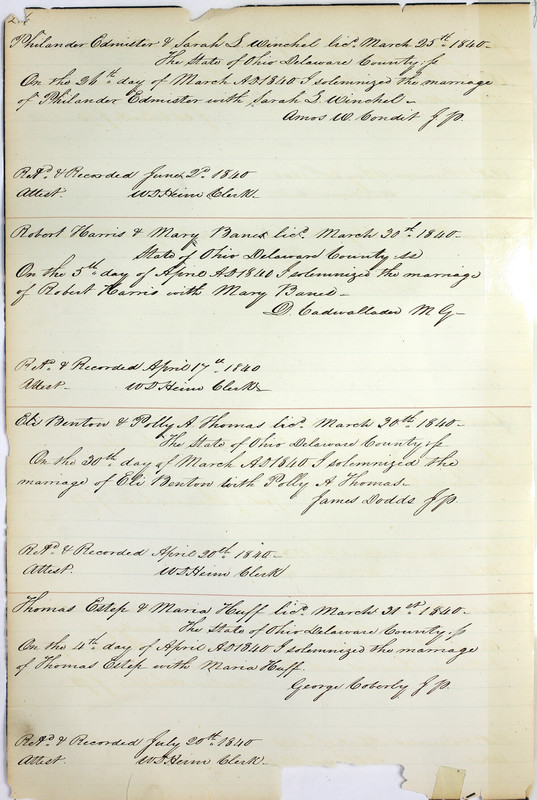 Philander Edmister & Sarah S. Winchel licd. March 25th 1840-
The State of Ohio Delaware County. ss
On the 26th day of March AD 1840 I solemnized the marriage
of Philander Edmister with Sarah S. Winchel-
Amos W. Condit J P.
Retd. & Recorded June 2d. 1840
Attest. W D Heim Clerk-
Robert Harris & Mary Banes licd. March 30th. 1840-
State of Ohio Delaware County ss
On the 5th day of April AD 1840 I solemnized the marriage
of Robert Harris with Mary Banes-
D. Cadwallader M G-
Retd. & Recorded April 17th 1840
Attest- W D Heim Clerk
Eli Benton & Polly A Thomas licd. March 30th. 1840-
The State of Ohio Delaware County ss
On the 30th day of March AD 1840 I solemnized the
marriage of Eli Benton with Polly A Thomas-
James Dodds J P.
Retd. & Recorded April 20th. 1840-
Attest. W D Heim Clerk
Thomas Estep & Maria Huff licd. March 31st. 1840-
The State of Ohio Delaware County. ss
On the 4th day of April AD 1840 I solemnized the marriage
of Thomas Estep with Maria Huff.
George Coberly J P.
Retd. & Recorded July 20th 1840
Attest. W D Heim Clerk-